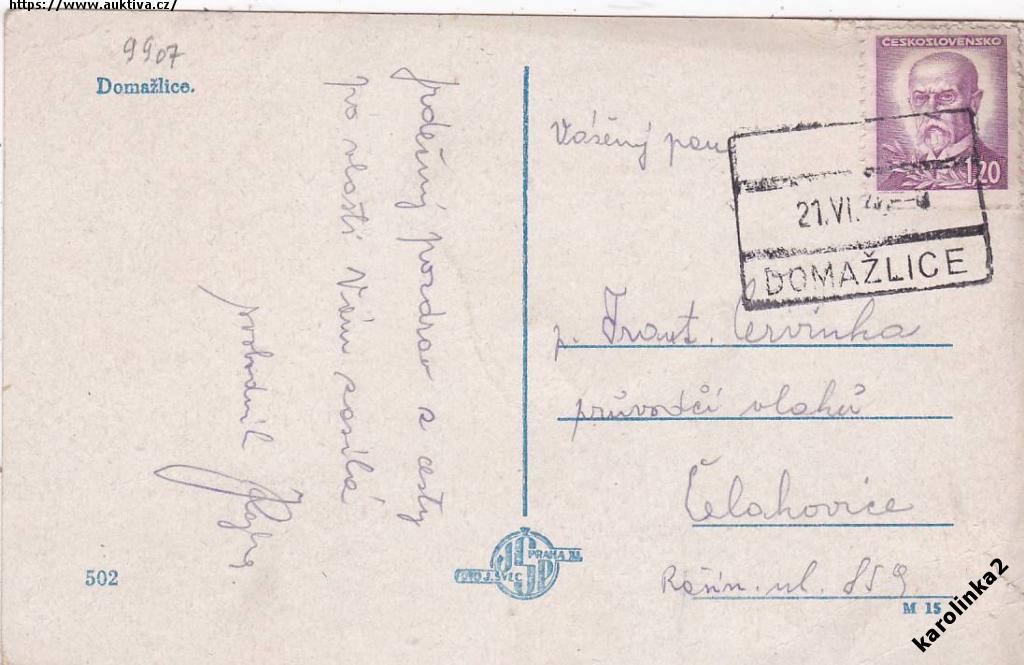 https://www.auktiva.cz/
9907
Domažlice.
srdečný pozdrav z cesty
po vlasti Vám zasílá
ČESKOSLOVENSKO
1.20
21.VI.
DOMAŽLICE
Vážený pan
p. Frant. Červinka
průvodčí vlaků
Čelahovice
ul. 859
FOTO J. ŠVEC PRAHA
502
M 15
karolinka2